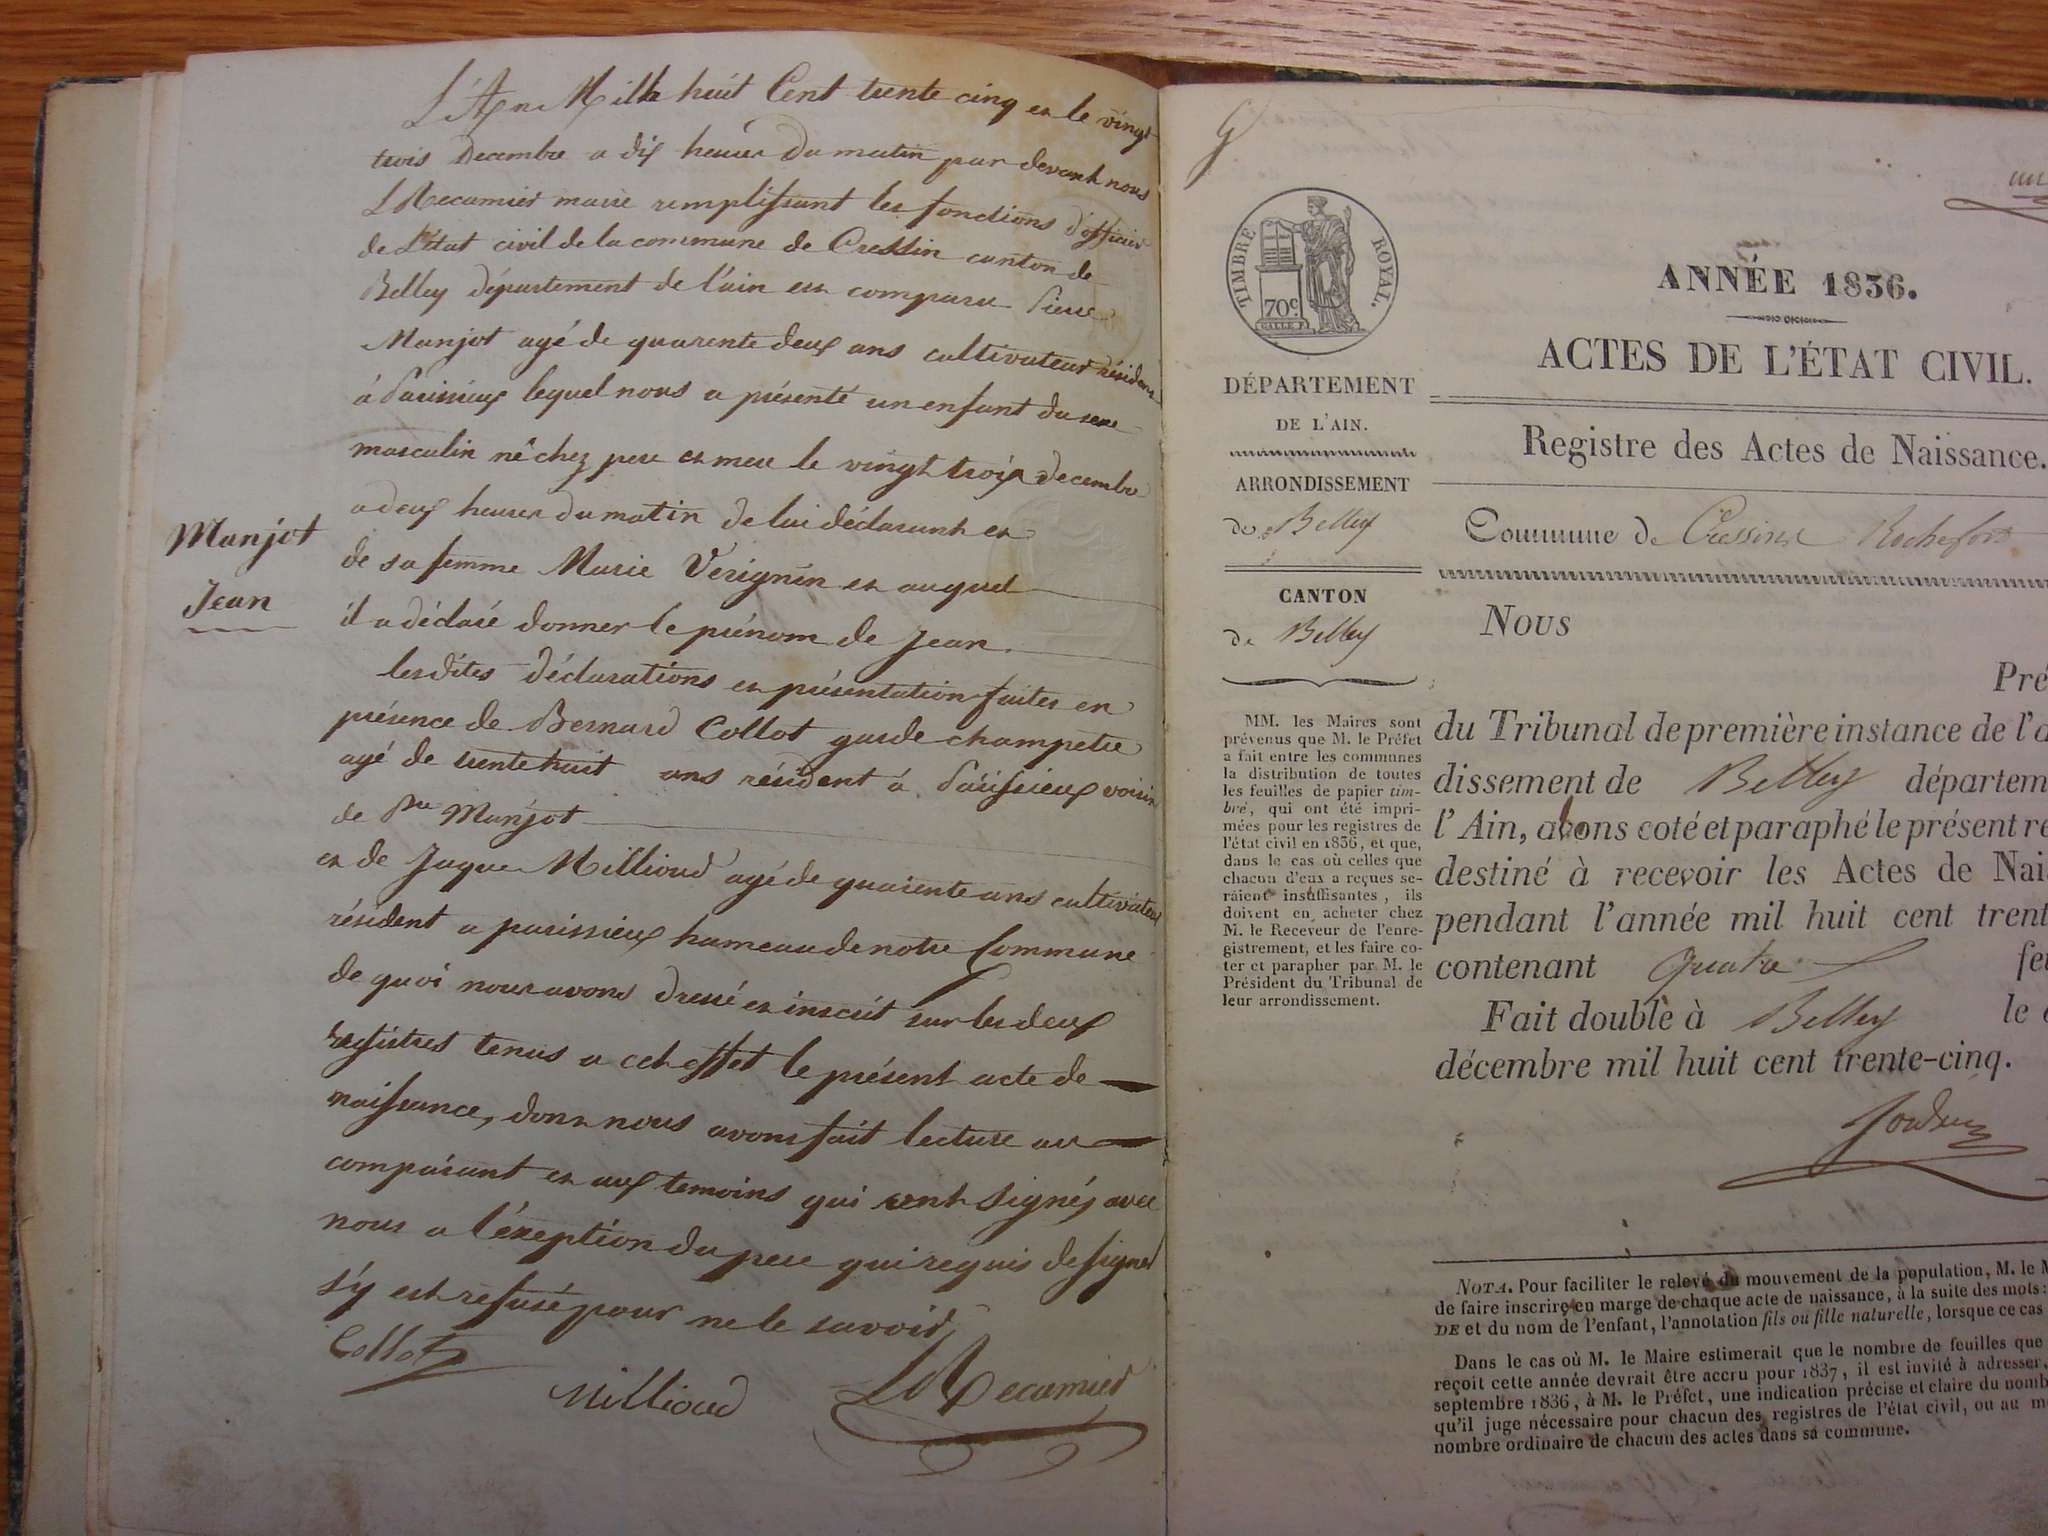 L'An Mille huit Cent trente cinq et le vingt
trois Decembre a dix heures du matin par devant nous
L Recamier maire remplissant les fonctions d'officier
de L'état civil de la commune de Cressin canton de
Belley département de l'ain est comparu Pierre
Manjot agé de quarente deux ans cultivateur résident
à Parissieux lequel nous a présenté un enfant du sexe
masculin nê chez pere et mere le vingt trois decembre
a deux heures du matin de lui déclarant et
de sa femme Marie Vérignin et auquel
il a déclaré donner le prénom de Jean.
lesdites déclarations et présentation faites en
présence de Bernard Collot garde champetre
agé de trente huit ans résident à Parissieux voisin
de Pre Manjot
et de Jaque Millioud agé de quarente ans cultivateur
résident a parissieux hameau de notre Commune
de quoi nous avons dressé et inscrit sur les deux
registres tenus a cet effet le présent acte de
naissance, dont nous avons fait lecture au
comparant et aux temoins qui sont signés avec
nous a l'éxeption du pere qui requis de signer
s'y est refusé pour ne le savoir
Collot
Millioud
L Recamier
Manjot
Jean
TIMBRE ROYAL.
70c
ANNÉE 1836.
ACTES DE L'ÉTAT CIVIL.
DÉPARTEMENT
DE L'AIN.
ARRONDISSEMENT
de Belley
CANTON
de Belley
MM. les Maires sont
prévenus que M. le Préfet
a fait entre les communes
la distribution de toutes
les feuilles de papier tim-
bré, qui ont été impri-
mées pour les registres de
l'état civil en 1836, et que,
dans le cas où celles que
chacun d'eux a reçues se-
raient insuffisantes, ils
doivent en acheter chez
M. le Receveur de l'enre-
gistrement, et les faire co-
ter et parapher par M. le
Président du Tribunal de
leur arrondissement.
Registre des Actes de Naissance.
Commune de Cressin Rochefort
Nous
Pré
du Tribunal de première instance de l'a
dissement de Belley départem
l'Ain, avons coté et paraphé le présent re
destiné à recevoir les Actes de Nai
pendant l'année mil huit cent trent
contenant quatre feu
Fait double à Belley le
décembre mil huit cent trente-cinq.
NOTA. Pour faciliter le relevé du mouvement de la population, M. le M
de faire inscrire en marge de chaque acte de naissance, à la suite des mots:
DE et du nom de l'enfant, l'annotation fils ou fille naturelle, lorsque ce cas
Dans le cas où M. le Maire estimerait que le nombre de feuilles que
reçoit cette année devrait être accru pour 1837, il est invité à adresser,
septembre 1836, à M. le Préfet, une indication précise et claire du nomb
qu'il juge nécessaire pour chacun des registres de l'état civil, ou au m
nombre ordinaire de chacun des actes dans sa commune.